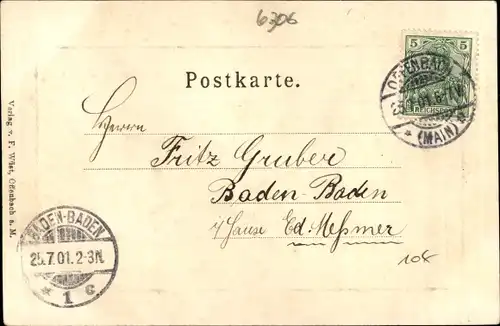 6306
5
OFFENBACH
REICHSPOST
* (MAIN) *
Postkarte.
Herrn
Fritz Gruber
Baden-Baden
i/Hause Ed. Messmer
Verlag v. F. Wüst, Offenbach a. M.
BADEN-BADEN
25.7.01.2-3N.
* 1 c.